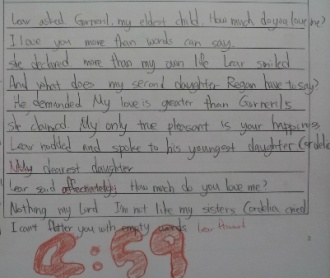 Lear asked Gorneril, my eldest child. How much do you love me?
I love you more than words can say.
she declared more than my own life Lear smiled
And what does my second daughter Regan have to say?
He demanded My love is greater than Gorneril's
she claimed My only true pleasant is your happiness
Lear nodded and spoke to his youngest daughter Cordelia
My dearest daughter
Lear said affectionately How much do you love me?
Nothing my Lord I'm not like my sisters Cordelia cried
I cant flatter you with empty words Lear
2:59